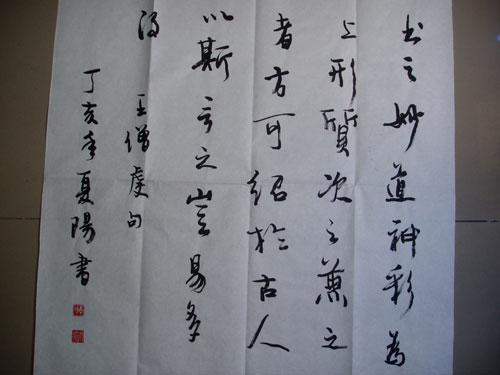 书之妙道神彩為
上形質次之兼之
者方可紹於古人
以斯言之豈易多
得
王僧虔句
丁亥年夏陽書